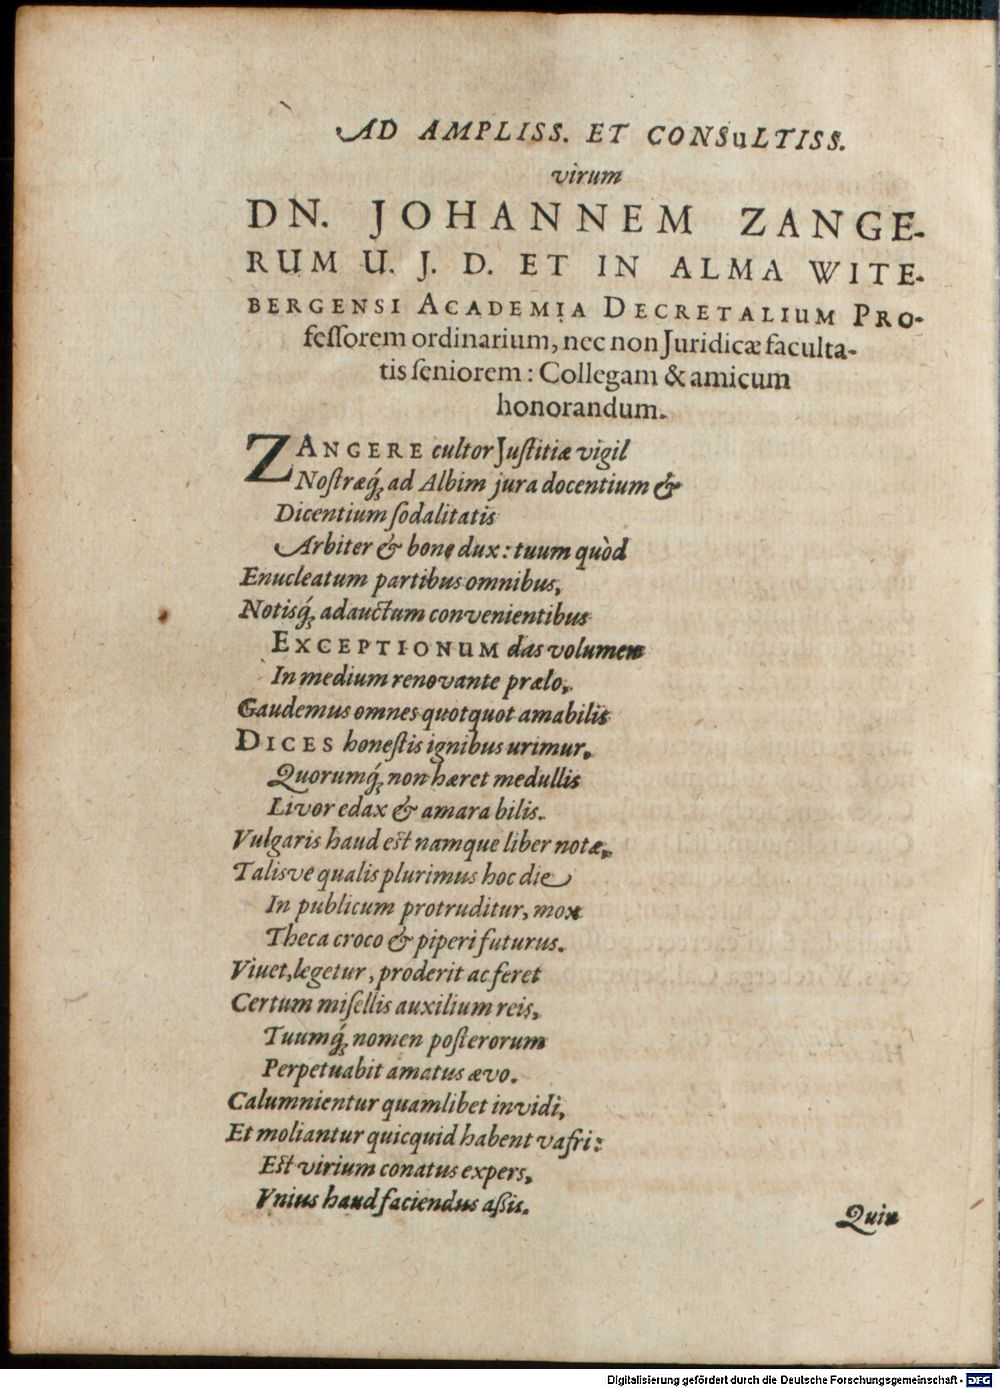 AD AMPLISS. ET CONSuLTISS.
virum
DN. JOHANNEM ZANGE-
RUM U. J. D. ET IN ALMA WITE-
BERGENSI ACADEMIA DECRETALIUM PRO-
feſſorem ordinarium, nec non Juridicæ faculta-
tis ſeniorem: Collegam & amicum
honorandum.
ZANGERE cultor Juſtitiæ vigil
Noſtræq́; ad Albim jura docentium &
Dicentium ſodalitatis
Arbiter & bone dux: tuum quòd
Enucleatum partibus omnibus,
Notisq́; adauctum convenientibus
EXCEPTIONUM das volumen
In medium renovante prælo,
Gaudemus omnes quotquot amabilis
DICES honeſtis ignibus urimur,
Quorumq́; non hæret medullis
Livor edax & amara bilis.
Vulgaris haud est namque liber notæ,
Talisve qualis plurimus hoc die
In publicum protruditur, mox
Theca croco & piperi futurus.
Viuet, legetur, proderit ac feret
Certum miſellis auxilium reis,
Tuumq́; nomen poſterorum
Perpetuabit amatus ævo.
Calumnientur quamlibet invidi,
Et moliantur quicquid habent vafri:
Est virium conatus expers,
Vnius haud faciendus aßis.
Quin
Digitalisierung gefördert durch die Deutsche Forschungsgemeinschaft - DFG